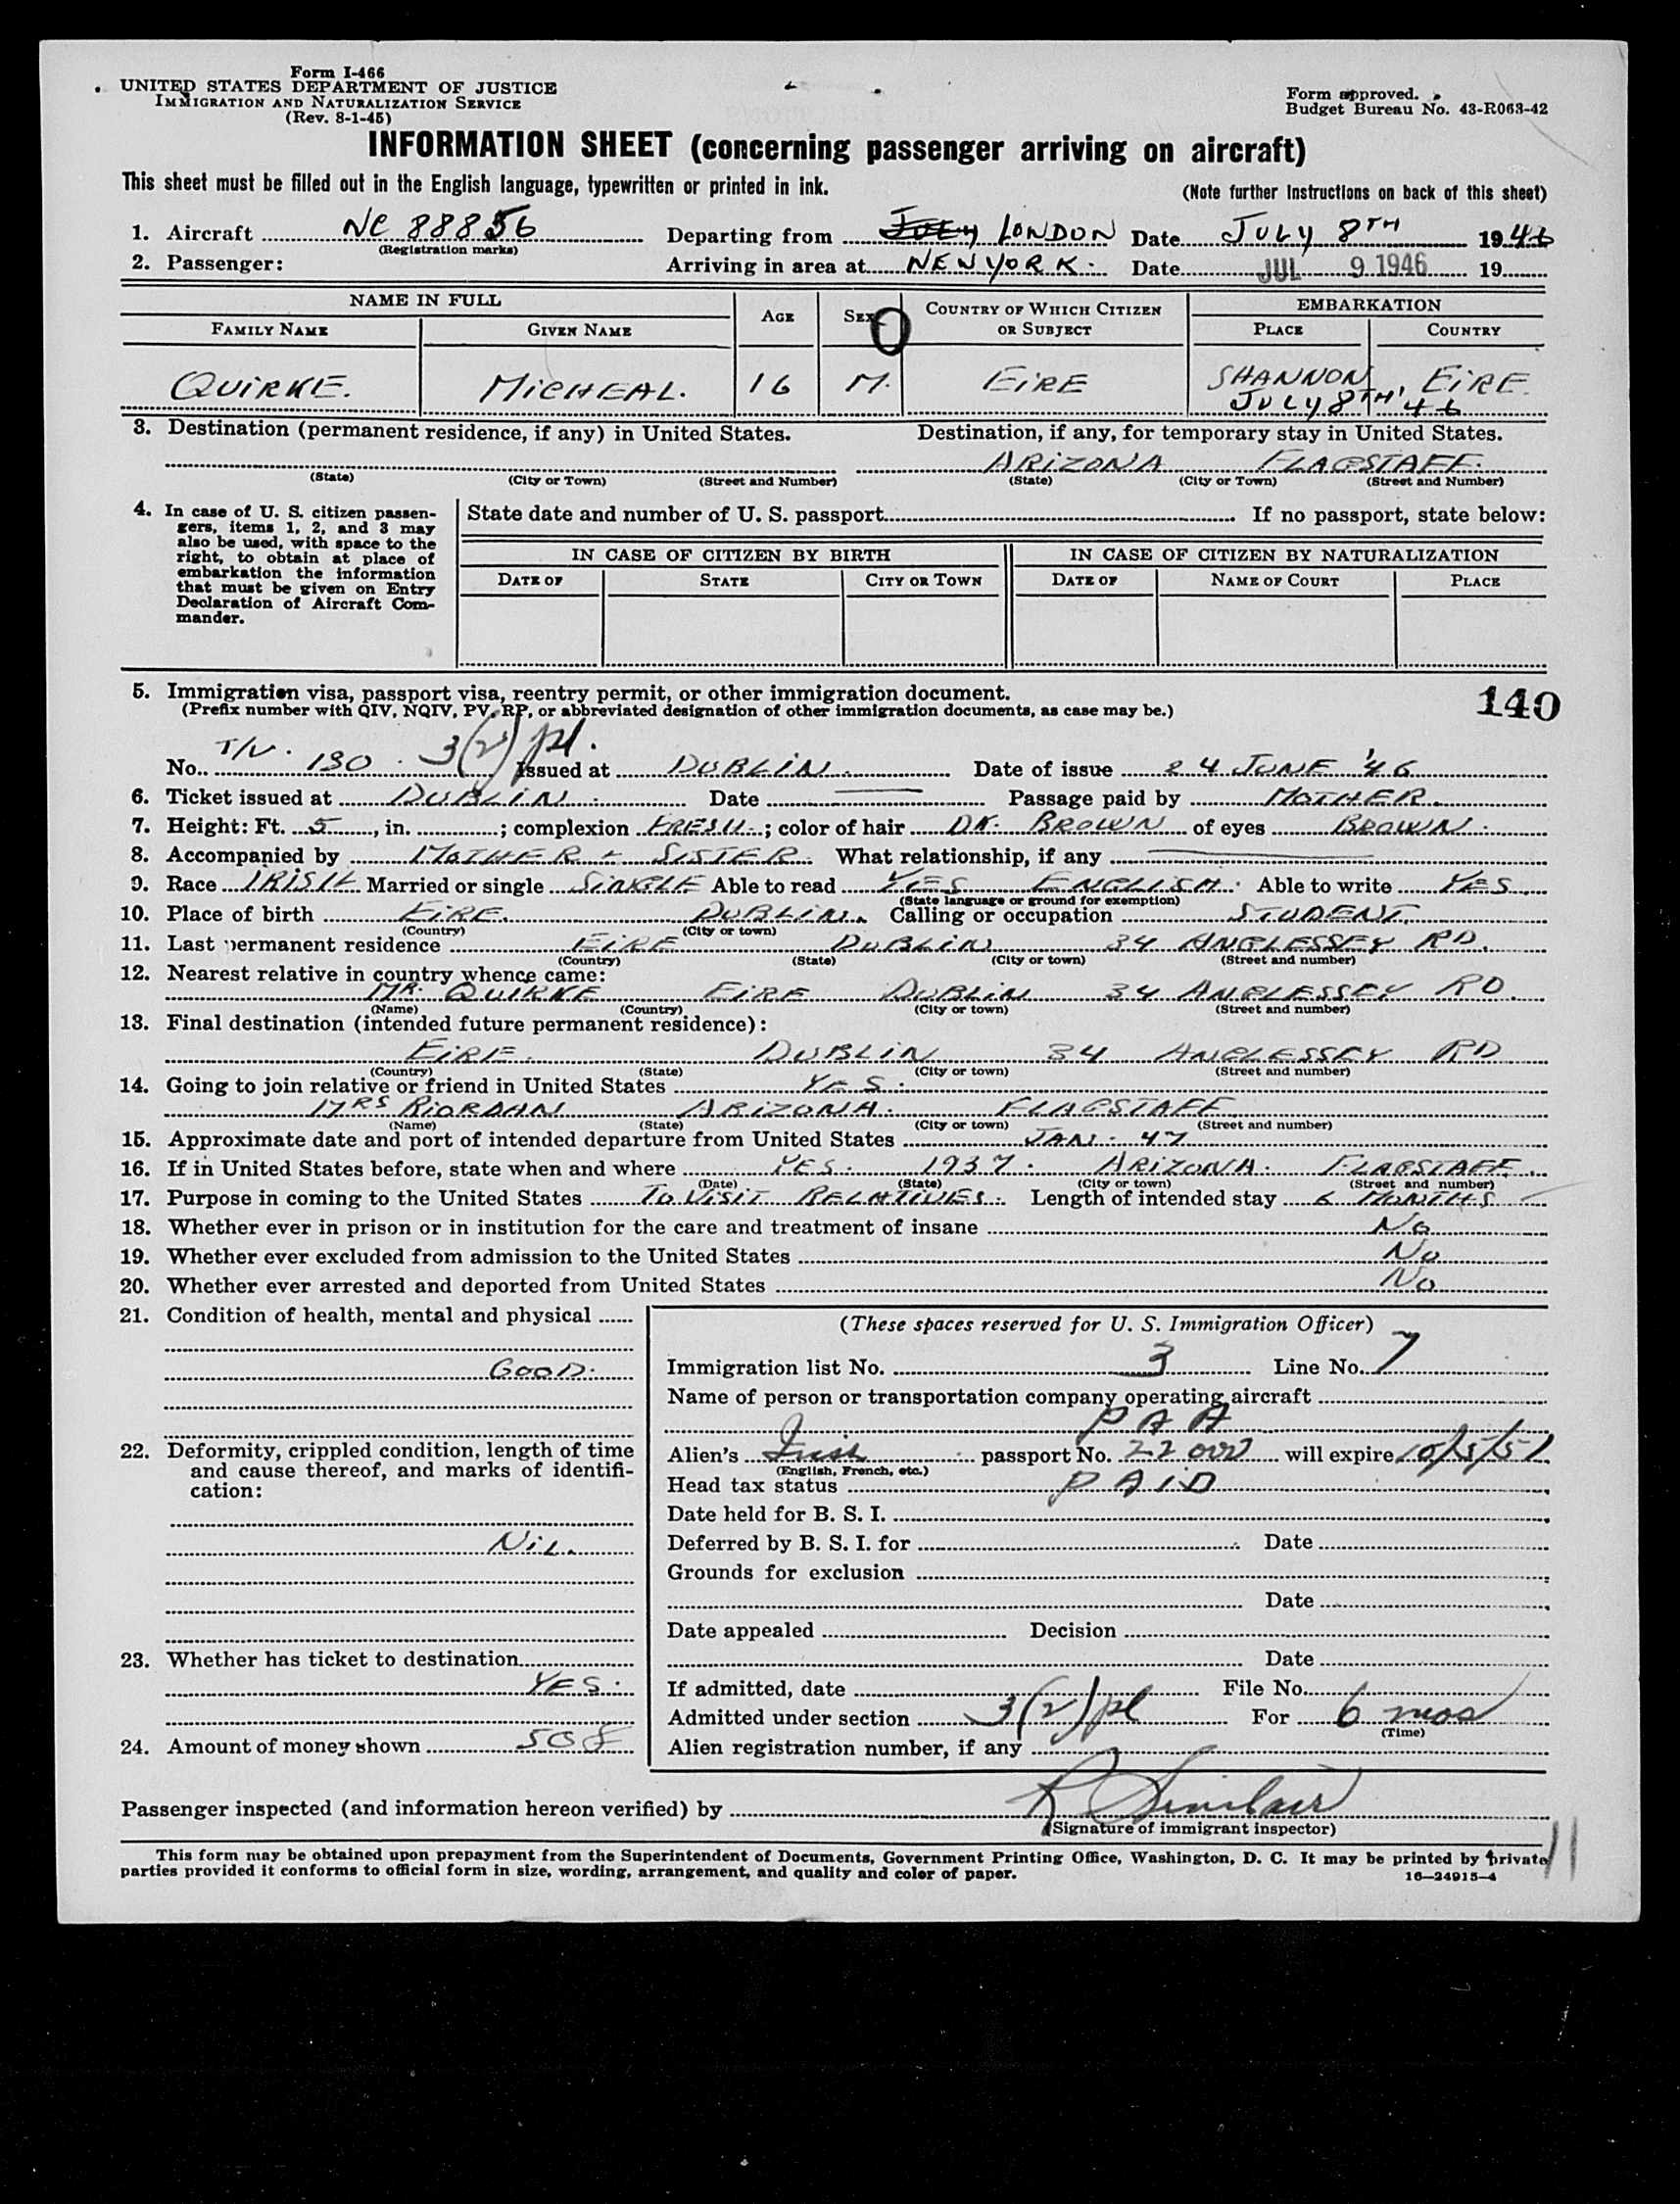 Form I-466
UNITED STATES DEPARTMENT OF JUSTICE
IMMIGRATION AND NATURALIZATION SERVICE
(Rev. 8-1-45)
Form approved.
Budget Bureau No. 43-R063-42
INFORMATION SHEET (concerning passenger arriving on aircraft)
This sheet must be filled out in the English language, typewritten or printed in ink.
(Note further Instructions on back of this sheet)
1. Aircraft NC 88856 Departing from LONDON Date JULY 8TH 1946
(Registration marks)
2. Passenger: Arriving in area at NEW YORK. Date JUL 9 1946 19
NAME IN FULL AGE SEX COUNTRY OF WHICH CITIZEN OR SUBJECT EMBARKATION
FAMILY NAME GIVEN NAME PLACE COUNTRY
QUIRKE. MICHEAL. 16 M. EIRE SHANNON, EIRE.
JULY 8TH '46
3. Destination (permanent residence, if any) in United States. Destination, if any, for temporary stay in United States.
ARIZONA FLAGSTAFF.
(State) (City or Town) (Street and Number) (State) (City or Town) (Street and Number)
4. In case of U. S. citizen passen-
gers, items 1, 2, and 3 may
also be used, with space to the
right, to obtain at place of
embarkation the information
that must be given on Entry
Declaration of Aircraft Com-
mander.
State date and number of U. S. passport If no passport, state below:
IN CASE OF CITIZEN BY BIRTH IN CASE OF CITIZEN BY NATURALIZATION
DATE OF STATE CITY OR TOWN DATE OF NAME OF COURT PLACE
5. Immigration visa, passport visa, reentry permit, or other immigration document.
(Prefix number with QIV, NQIV, PV, RP, or abbreviated designation of other immigration documents, as case may be.)
140
T/V. 3(2) pl.
No. 130. Issued at DUBLIN. Date of issue 24 JUNE '46
6. Ticket issued at DUBLIN. Date Passage paid by MOTHER.
7. Height: Ft. 5, in. ; complexion FRESH; color of hair DK. BROWN of eyes BROWN.
8. Accompanied by MOTHER + SISTER. What relationship, if any
9. Race IRISH Married or single SINGLE Able to read YES ENGLISH. Able to write YES
(State language or ground for exemption)
10. Place of birth EIRE. DUBLIN. Calling or occupation STUDENT.
(Country) (City or town)
11. Last permanent residence EIRE DUBLIN 34 ANGLESSEY RD.
(Country) (State) (City or town) (Street and number)
12. Nearest relative in country whence came:
MR. QUIRKE EIRE DUBLIN 34 ANGLESSEY RD.
(Name) (Country) (City or town) (Street and number)
13. Final destination (intended future permanent residence):
EIRE. DUBLIN 34 ANGLESSEY RD
(Country) (State) (City or town) (Street and number)
14. Going to join relative or friend in United States YES.
MRS RIORDAN ARIZONA. FLAGSTAFF
(Name) (State) (City or town) (Street and number)
15. Approximate date and port of intended departure from United States JAN. 47
16. If in United States before, state when and where YES. 1937. ARIZONA. FLAGSTAFF.
(Date) (State) (City or town) (Street and number)
17. Purpose in coming to the United States TO VISIT RELATIVES. Length of intended stay 6 MONTHS
18. Whether ever in prison or in institution for the care and treatment of insane No
19. Whether ever excluded from admission to the United States No
20. Whether ever arrested and deported from United States No
21. Condition of health, mental and physical
GOOD.
22. Deformity, crippled condition, length of time
and cause thereof, and marks of identifi-
cation:
NIL.
23. Whether has ticket to destination
YES.
24. Amount of money shown
(These spaces reserved for U. S. Immigration Officer)
Immigration list No. 3 Line No. 7
Name of person or transportation company operating aircraft
PAA
Alien's Irish passport No. 22 will expire
(English, French, etc.)
Head tax status PAID
Date held for B. S. I.
Deferred by B. S. I. for Date
Grounds for exclusion
Date
Date appealed Decision
Date
If admitted, date File No.
Admitted under section 3(2) pl For 6 mos
(Time)
Alien registration number, if any
Passenger inspected (and information hereon verified) by R Sinclair
(Signature of immigrant inspector)
This form may be obtained upon prepayment from the Superintendent of Documents, Government Printing Office, Washington, D. C. It may be printed by private
parties provided it conforms to official form in size, wording, arrangement, and quality and color of paper.
16—24915-4
11